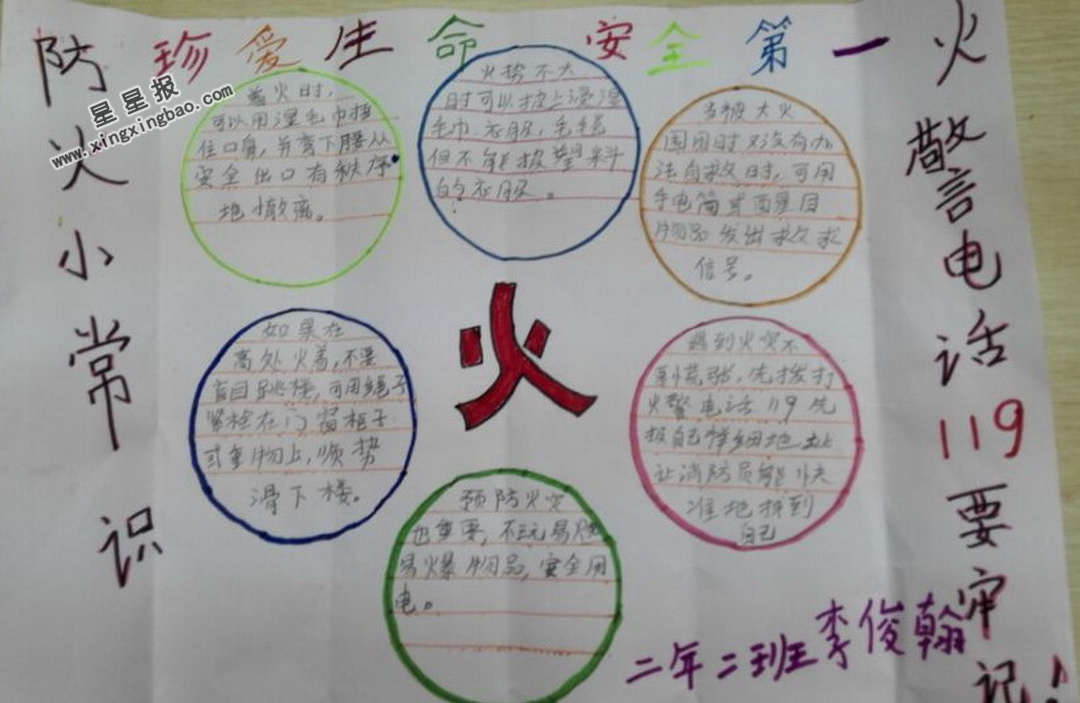 珍爱生命安全第一
防火小常识
星星报
www.xingxingbao.com
着火时，
可以用湿毛巾捂
住口鼻，并弯下腰从
安全出口有秩序
地撤离。
火势不大
时可以披上浸湿
毛巾、衣服，毛毯
但不能披塑料
的衣服。
当被大火
围困时又没有办
法自救时，可用
手电筒或西星目
物品发出求救
信号。
火
如果在
高处火着，不要
盲目跳楼，可用绳子
紧栓在门窗框子
或重物上，顺势
滑下楼。
遇到火灾不
要慌张，先拨打
火警电话119先
报自己详细地址
让消防员能快
准地找到
自己
预防火灾
也重要，不玩易燃
易爆物品，安全用
电。
火警电话119要牢记！
二年二班李俊翰